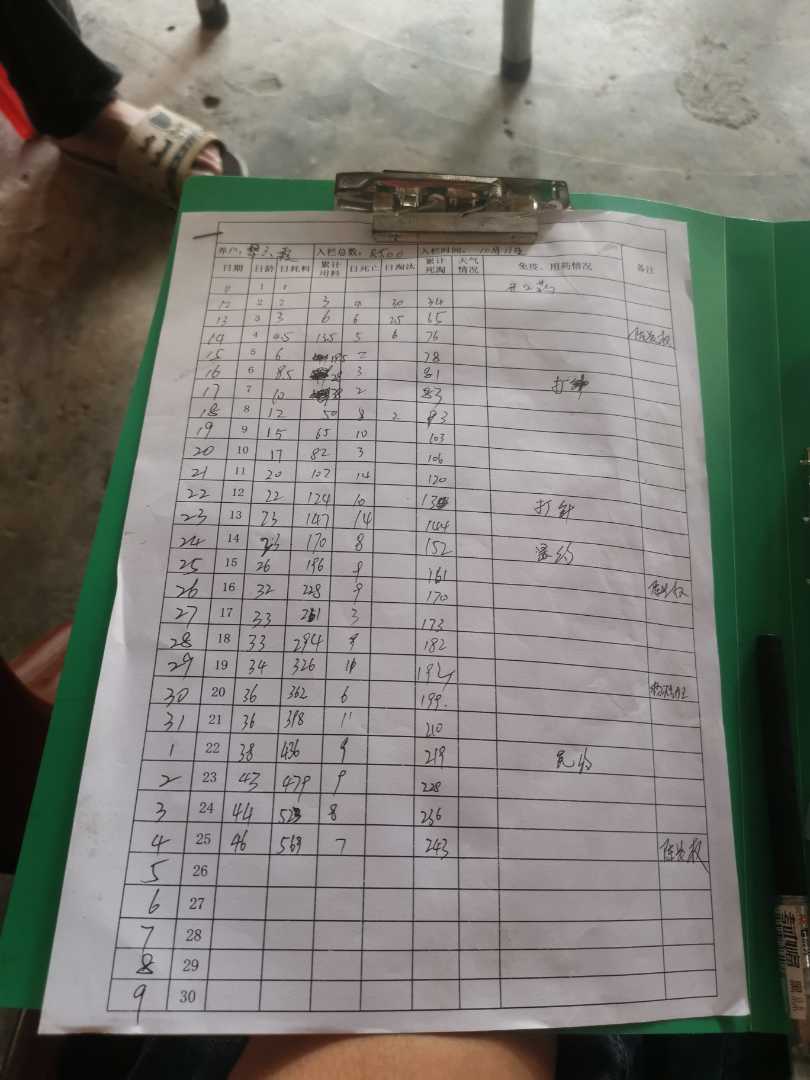 养户： 入栏总数：8500 入栏时间：10月11号
日期 日龄 日耗料 累计用料 日死亡 日淘汰 累计死淘 天气情况 免疫、用药情况 备注
11 1 1
12 2 2 3 4 30 34
13 3 3 6 6 25 65
14 4 5 6 76 陈发权
15 5 6 195 2 78
16 6 8.5 28 3 81
17 7 10 38 2 83 打针
18 8 12 50 8 2 93
19 9 15 65 10 103
20 10 17 82 3 106
21 11 20 102 14 120
22 12 22 124 10 打针
23 13 23 147 14 144
24 14 23 170 8 152
25 15 26 196 9 161
26 16 32 228 9 170
27 17 33 261 3 173
28 18 33 294 9 182
29 19 34 326
30 20 36 362 6 199
31 21 36 398 11 210
1 22 38 436 9 219
2 23 43 479 9 228
3 24 44 523 8 236
4 25 46 569 7 243 陈发权
5 26
6 27
7 28
8 29
9 30